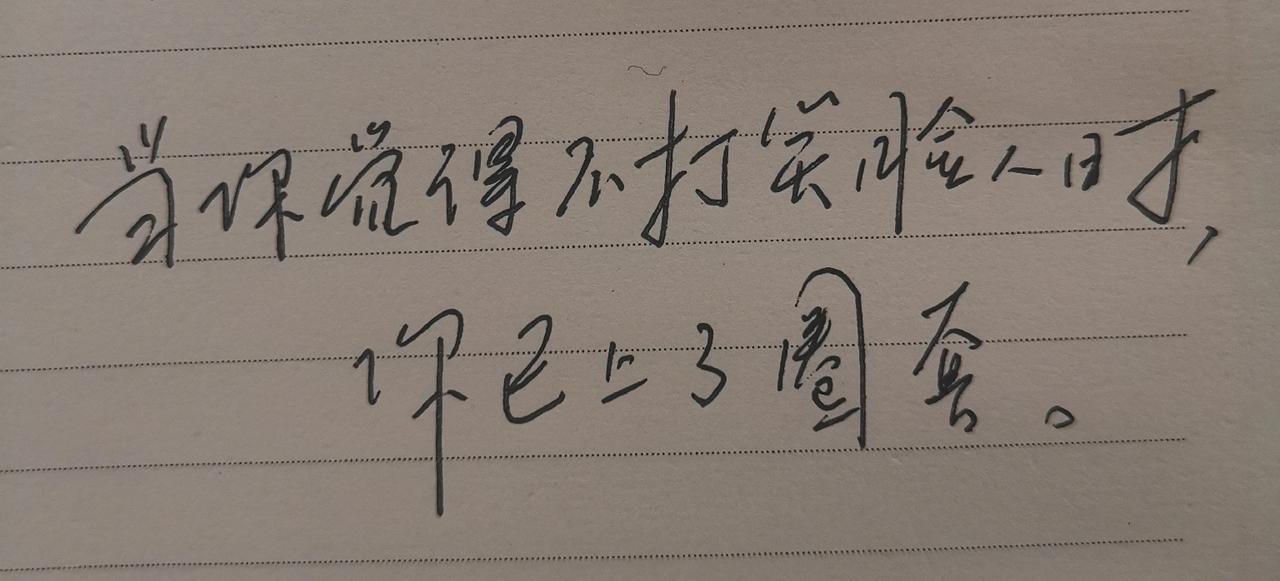 当你觉得不打笑脸人时，
你已上了圈套。